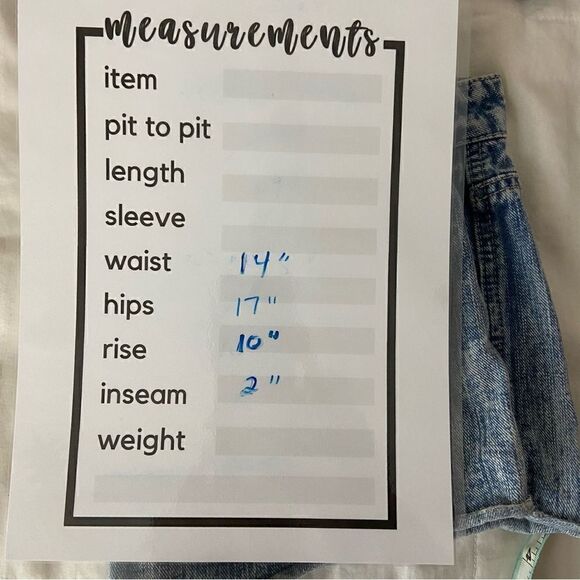 measurements
item
pit to pit
length
sleeve
waist 14"
hips 17"
rise 10"
inseam 2"
weight